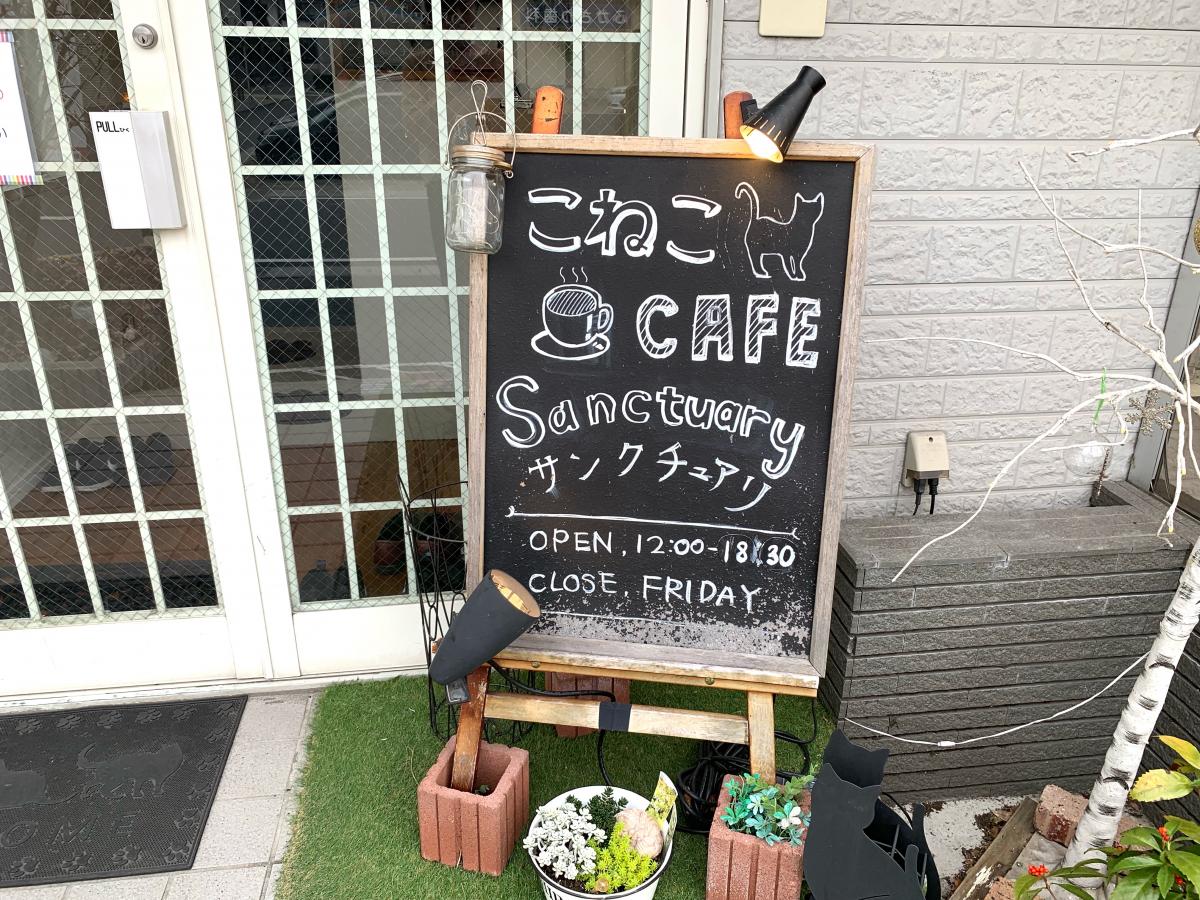 PULL ひく
こねこ
CAFE
Sanctuary
サンクチュアリ
OPEN, 12:00-18:30
CLOSE, FRIDAY